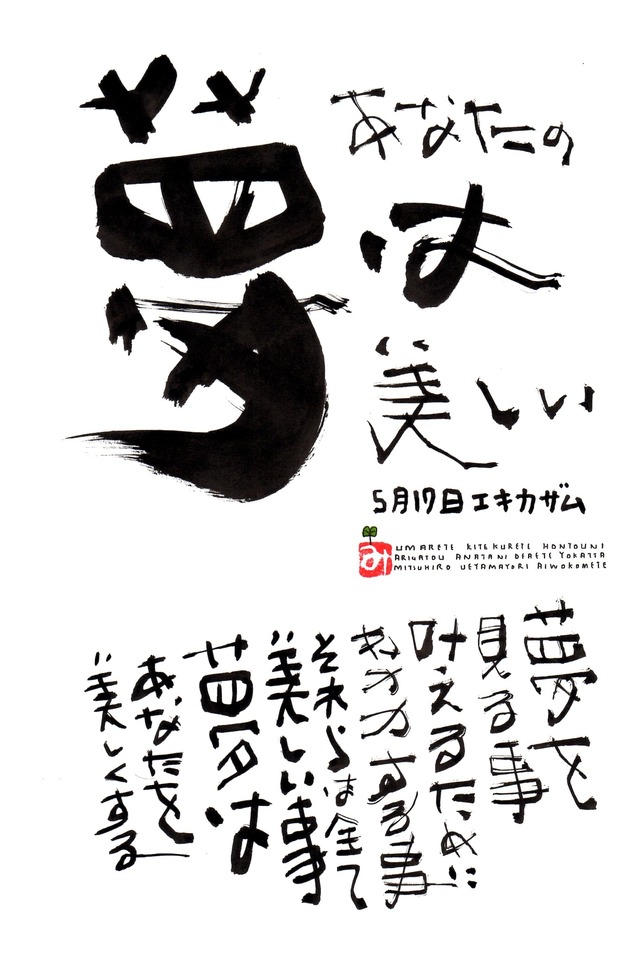 あなたの
夢
は
美しい
5月17日エキカザム
み
UMARETE KITEKURETE HONTOUNI
ARIGATOU ANATANI DEAETE YOKATTA
MITSUHIRO UEYAMAYORI AIWOKOMETE
夢を
見る事
叶えるために
努力する事
それらは全て
美しい事
夢は
あなたを
美しくする